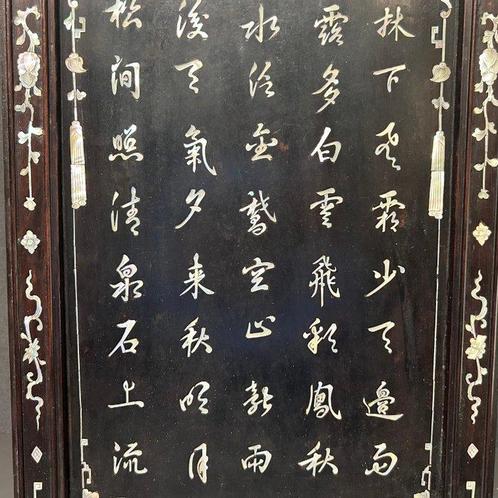 林下秃霜少天邊雨
露多白雲飛彩鳳秋
水冷金鵞空山新雨
後天氣夕来秋明月
松間照清泉石上流